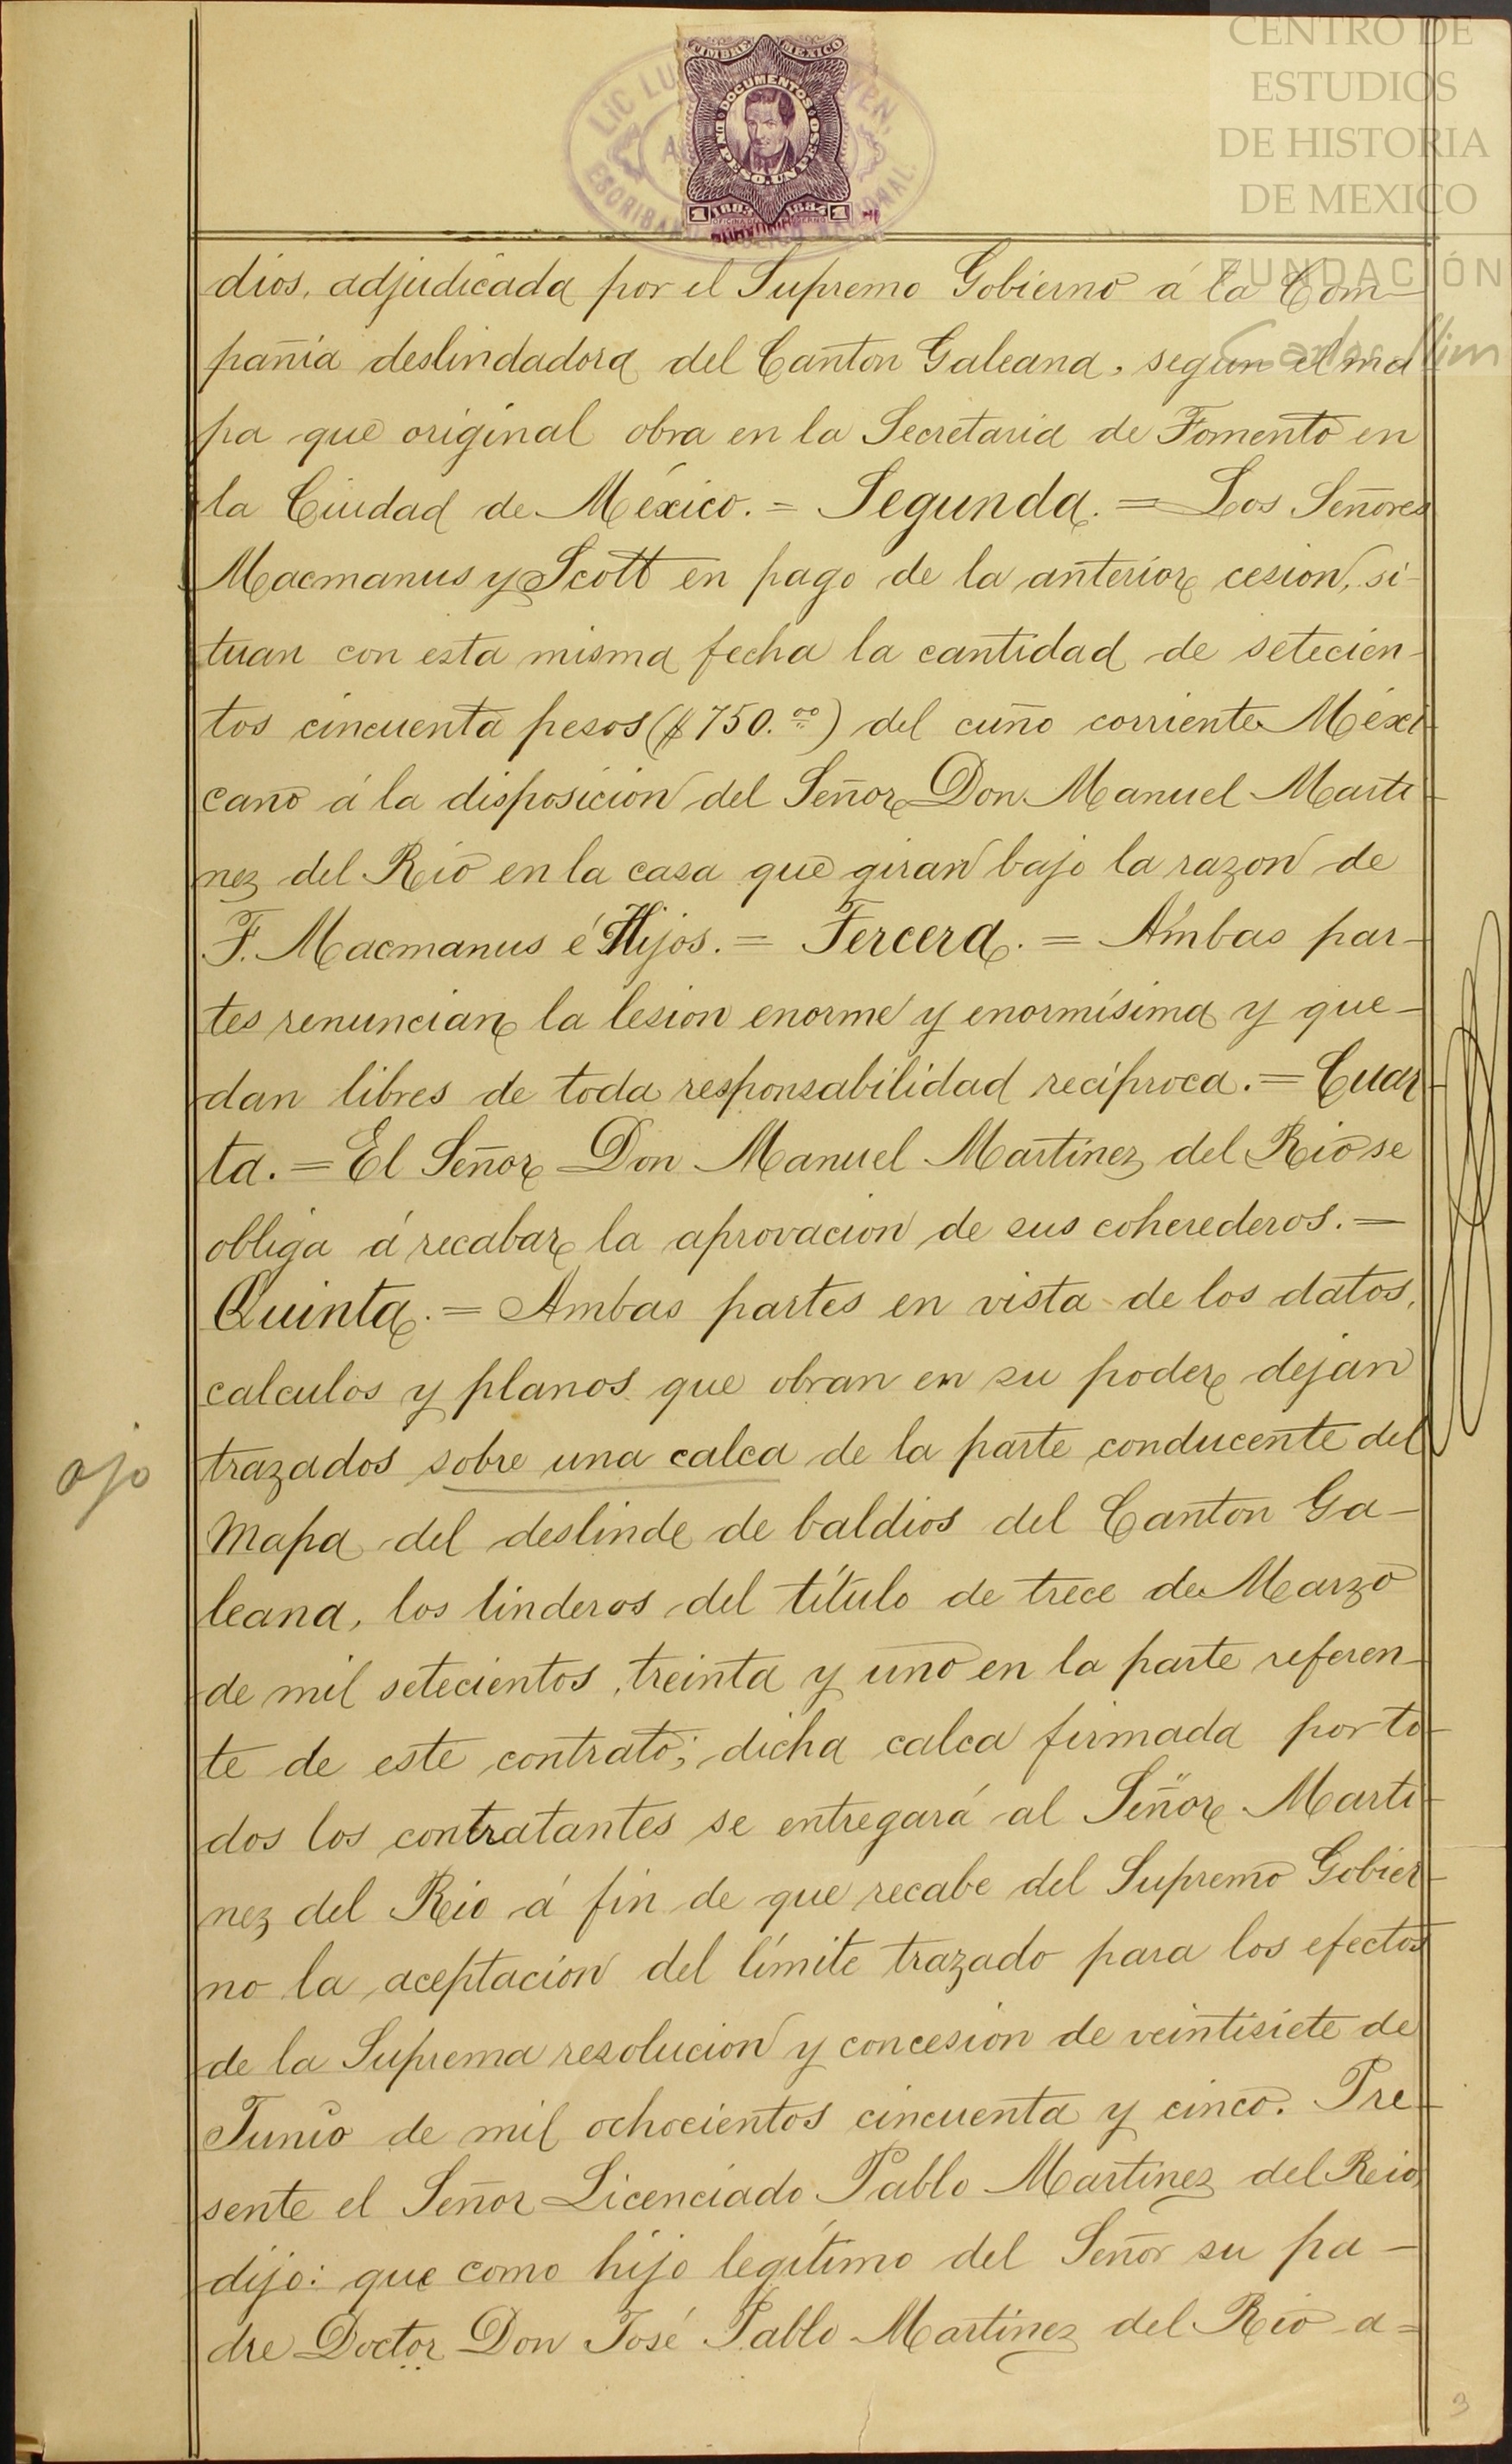 CENTRO DE
ESTUDIOS
DE HISTORIA
DE MEXICO
FUNDACIÓN
Carlos Slim
TIMBRE MEXICO
DOCUMENTOS
UN PESO. UN PESO
1 1883 1884 1
LIC LU
ESCRIBANO PUBLICO NACIONAL.
dios, adjudicada por el Supremo Gobierno á la Com-
pañia deslindadora del Canton Galeana, segun el ma
pa que original obra en la Secretaria de Fomento en
la Ciudad de México. = Segunda. = Los Señores
Macmanus y Scott en pago de la anterior cesion, si-
tuan con esta misma fecha la cantidad de setecien-
tos cincuenta pesos ($750.00) del cuño corriente Mexi-
cano á la disposicion del Señor Don Manuel Marti-
nez del Rio en la casa que giran bajo la razon de
F. Macmanus é Hijos. = Tercera. = Ambas par-
tes renuncian la lesion enorme y enormísima y que-
dan libres de toda responsabilidad recíproca. = Cuar-
ta. = El Señor Don Manuel Martinez del Rio se
obliga á recabar la aprovacion de sus coherederos. =
Quinta. = Ambas partes en vista de los datos,
calculos y planos que obran en su poder dejan
ojo
trazados sobre una calca de la parte conducente del
mapa del deslinde de baldios del Canton Ga-
leana, los linderos del título de trece de Marzo
de mil setecientos treinta y uno en la parte referen-
te de este contrato; dicha calca firmada por to-
dos los contratantes se entregará al Señor Marti-
nez del Rio á fin de que recabe del Supremo Gobier-
no la aceptacion del límite trazado para los efectos
de la Suprema resolucion y concesion de veintisiete de
Junio de mil ochocientos cincuenta y cinco. Pre-
sente el Señor Licenciado Pablo Martinez del Rio,
dijo: que como hijo legítimo del Señor su pa-
dre Doctor Don José Pablo Martinez del Rio a=
3